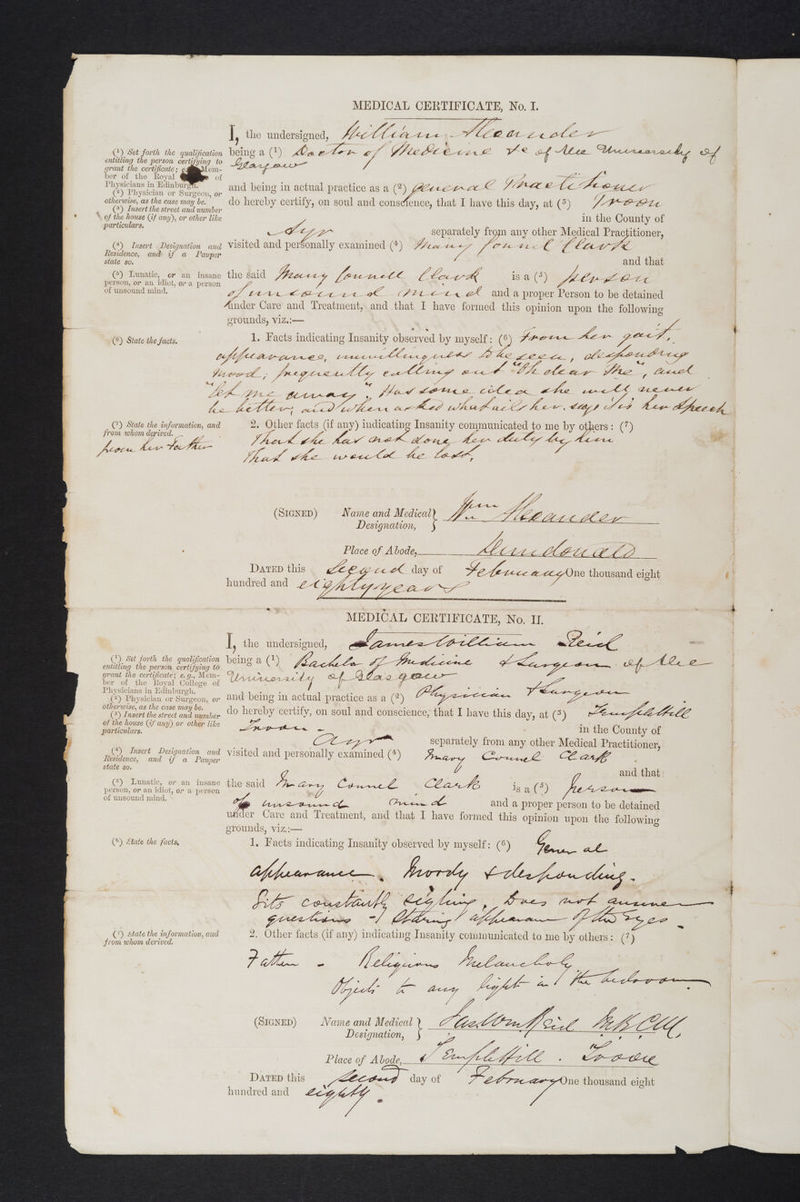 MEDICAL CERTIFICATE, No. I.
I, the undersigned, William Alexander
(1) Set forth the qualification entitling the person certifying to grant the certificate; Member of the Royal of Physicians in Edinburgh.
being a (1) Doctor of Medicine &c of the University of
Glasgow
(2) Physician or Surgeon, or otherwise, as the case may be.
and being in actual practice as a (2) General Practitioner
(3) Insert the street and number of the house (if any), or other like particulars.
do hereby certify, on soul and conscience, that I have this day, at (3) Troon
in the County of
Ayr separately from any other Medical Practitioner,
(4) Insert Designation and Residence, and if a Pauper state so.
visited and personally examined (4) Mary Connell Clark
and that
(5) Lunatic, or an insane person, or an idiot, or a person of unsound mind.
the said Mary Connell Clark is a (5) person
of unsound mind and a proper Person to be detained
under Care and Treatment, and that I have formed this opinion upon the following
grounds, viz.:—
(6) State the facts.
1. Facts indicating Insanity observed by myself: (6) From her gait,
appearance, unwillingness to be seen, desponding
mood; frequently calling out "Oh dear me", and
"let me away". Has some idea she will never
be better; and when asked what ails her, says 'tis her speech
(7) State the information, and from whom derived.
2. Other facts (if any) indicating Insanity communicated to me by others: (7)
from her Father
That she has not done her duty by him
That she would be lost,
(SIGNED) Name and Medical Designation, Wm Alexander
Place of Abode, Dundonald
DATED this Second day of February One thousand eight
hundred and eighty years
MEDICAL CERTIFICATE, No. II.
I, the undersigned, James William Reid
(1) Set forth the qualification entitling the person certifying to grant the certificate; e.g., Member of the Royal College of Physicians in Edinburgh.
being a (1) Bachelor of Medicine & Surgeon of the
University of Glasgow
(2) Physician, or Surgeon, or otherwise, as the case may be.
and being in actual practice as a (2) Physician & Surgeon
(3) Insert the street and number of the house (if any) or other like particulars.
do hereby certify, on soul and conscience, that I have this day, at (3) Templehill
Troon - in the County of
Ayr separately from any other Medical Practitioner,
(4) Insert Designation and Residence, and if a Pauper state so.
visited and personally examined (4) Mary Connel Clark
and that
(5) Lunatic, or an insane person, or an idiot, or a person of unsound mind.
the said Mary Connel Clark is a (5) person
of unsound mind and a proper person to be detained
under Care and Treatment, and that I have formed this opinion upon the following
grounds, viz.:—
(6) State the facts.
1. Facts indicating Insanity observed by myself: (6) General
appearance. Moody & desponding.
Sits constantly sighing, Does not answer
questions - Staring appearance of the eyes -
(7) State the information, and from whom derived.
2. Other facts (if any) indicating Insanity communicated to me by others: (7)
Father - Religious Melancholy
Objects to any light in the bedroom
(SIGNED) Name and Medical Designation, Jas Wm Reid M.B. C.M.
Place of Abode, Templehill. Troon
DATED this second day of February One thousand eight
hundred and eighty.